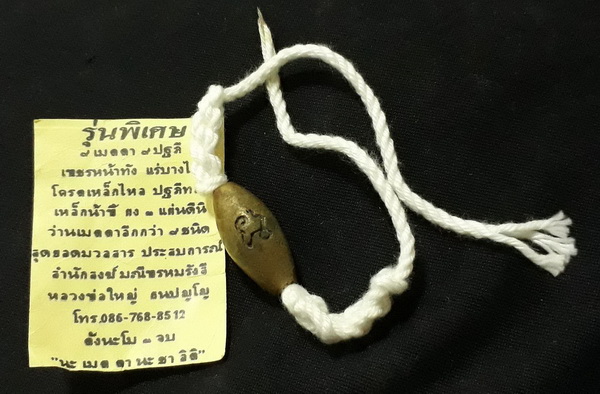 รุ่นพิเศษ
๘ เมตตา ๙ ปฐภี
เพชรหน้าทั่ง แร่บางไ
โคตรเหล็กไหล ปฐภี
เหล็กน้ำพี้ ดิน
ว่านเมตตาอีกกว่า ๙ชนิด
สุดยอดมวลสาร ประสบการณ์
สำนักสงฆ์
หลวงพ่อใหญ่ ธนปญฺโญ
โทร.086-768-8512
ตั้งนะโม ๓ จบ
"นะ เมต ตา นะ ชา ลิติ"